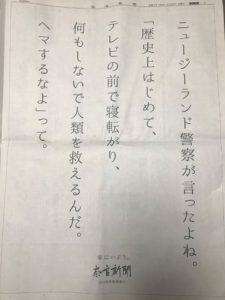 ニュージーランド警察が言ったよね。
「歴史上はじめて、
テレビの前で寝転がり、
何もしないで人類を救えるんだ。
ヘマするなよ」って。
家にいよう。
奈良新聞